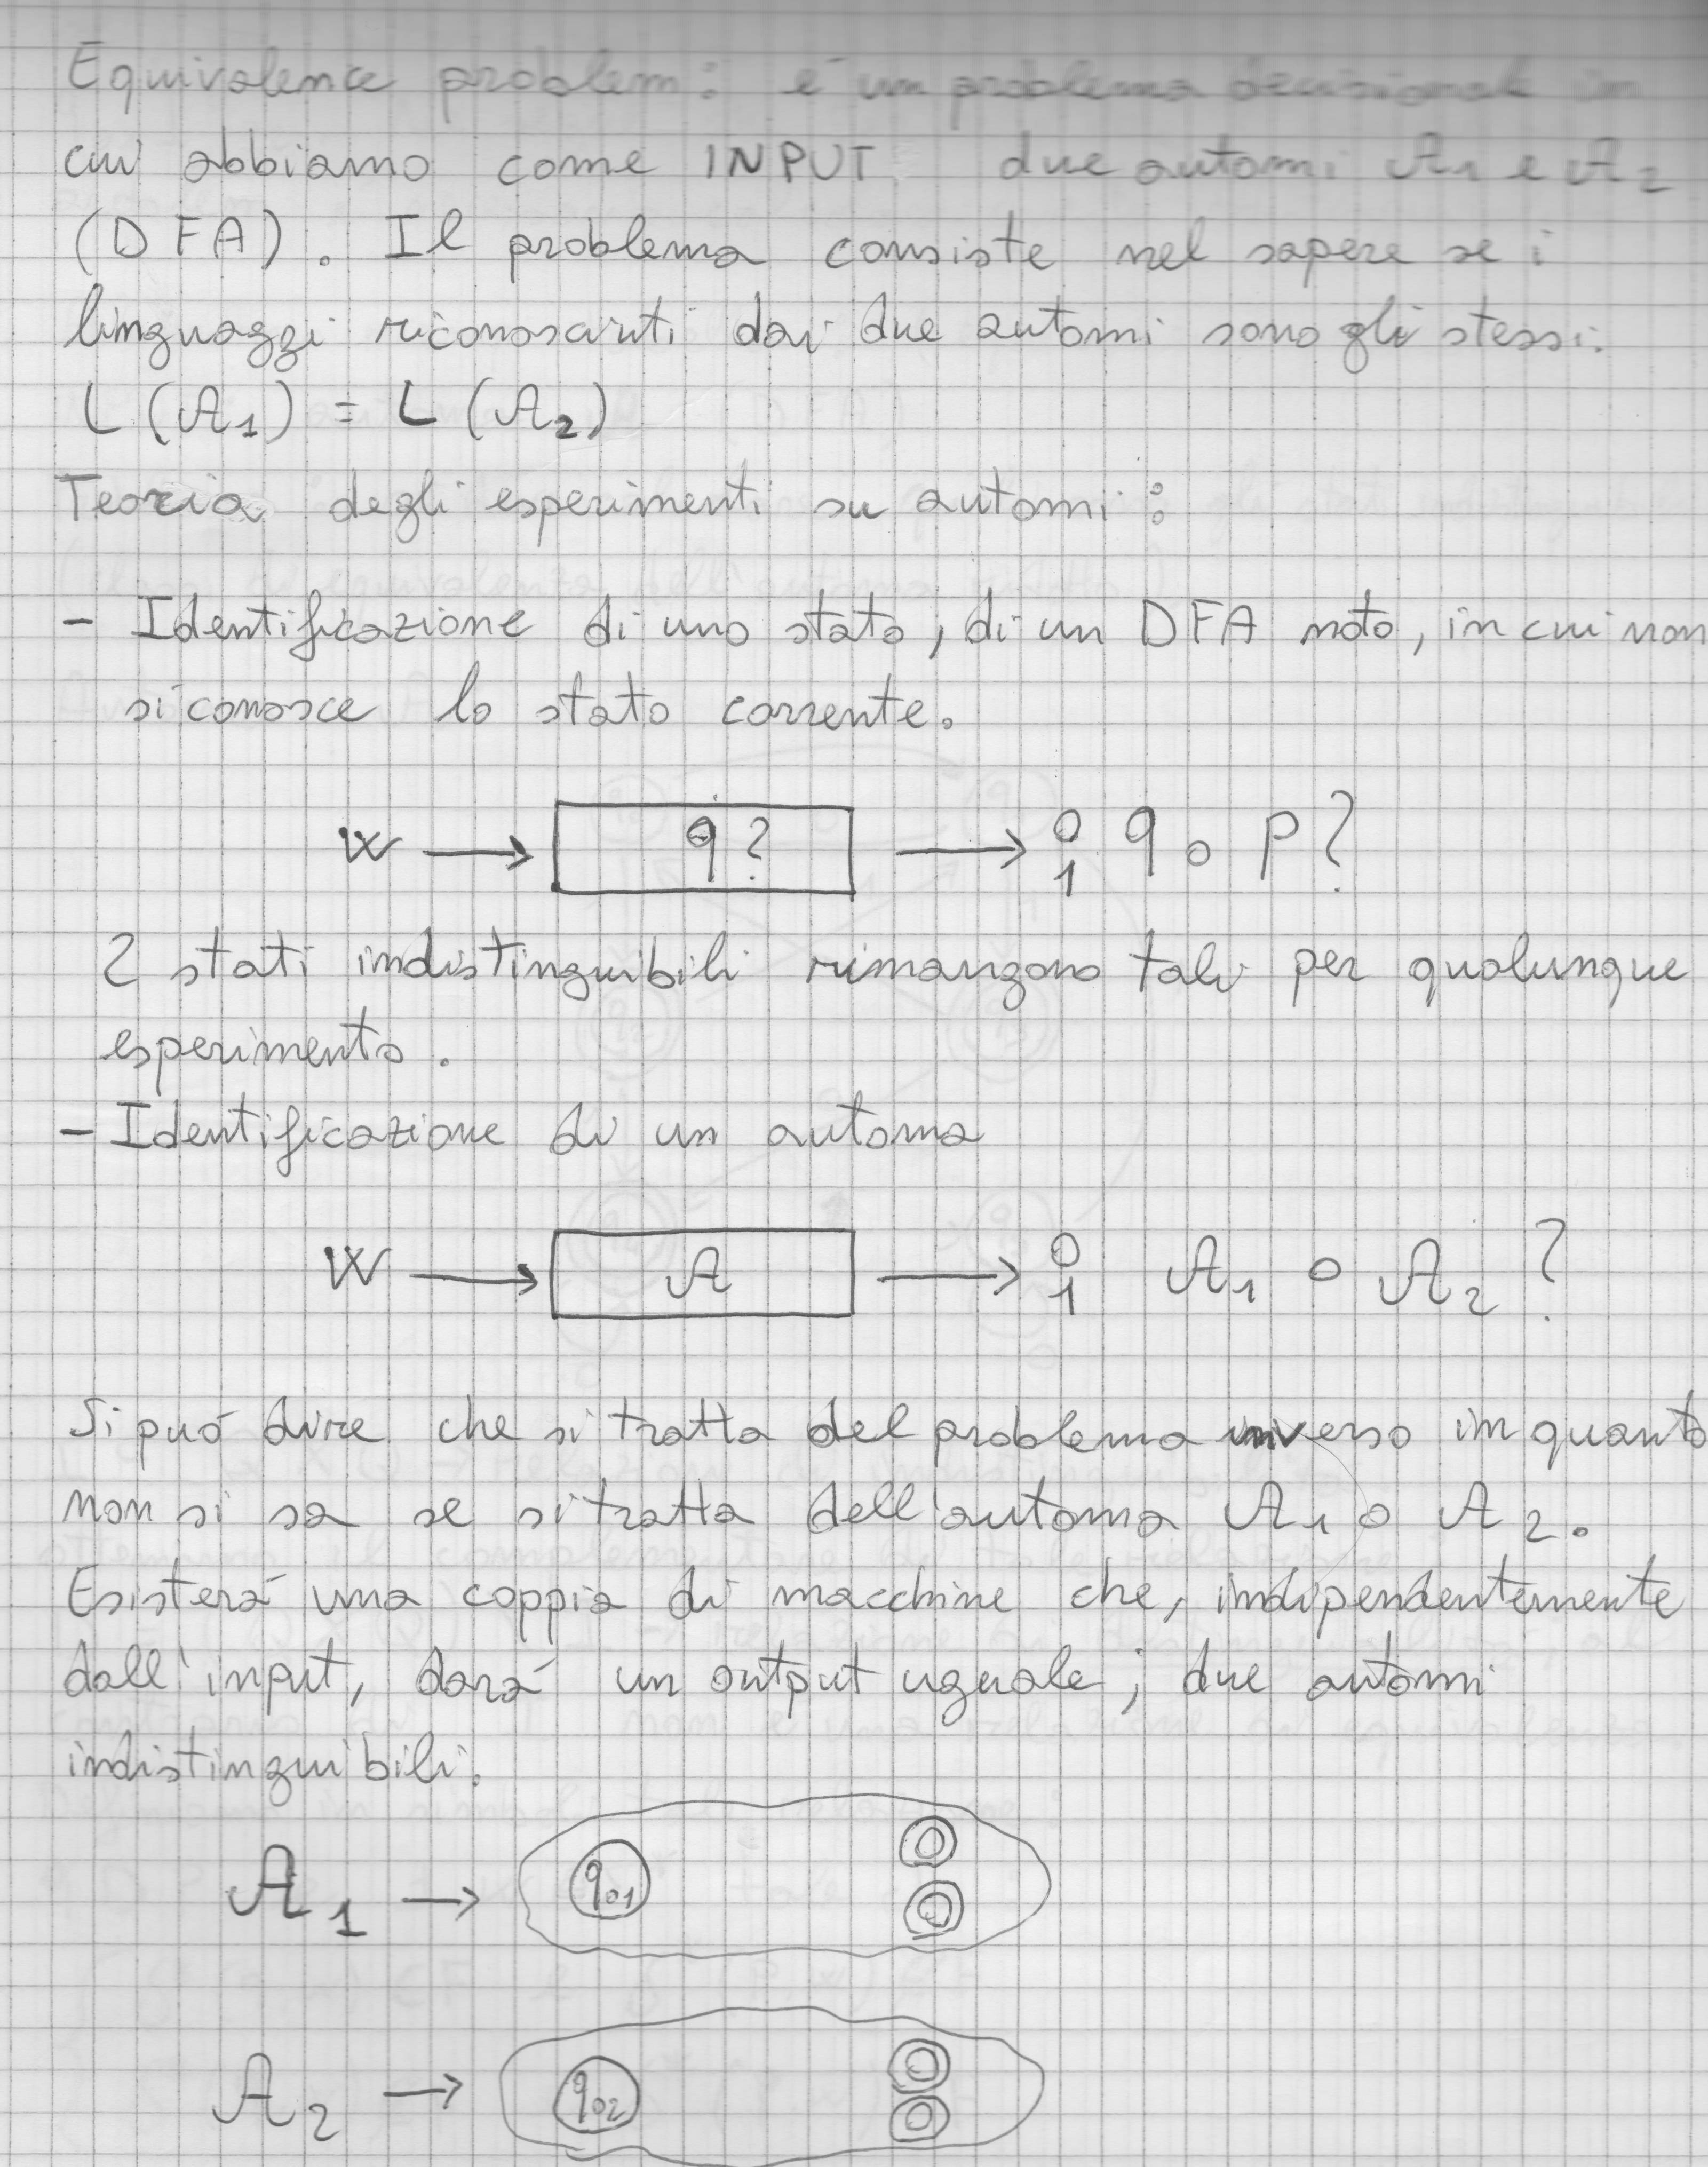 Equivalence problem: é un problema decisionale in
cui abbiamo come INPUT due automi A1 e A2
(DFA). Il problema consiste nel sapere se i
linguaggi riconosciuti dai due automi sono gli stessi.
L(A1) = L(A2)
Teoria degli esperimenti su automi:
- Identificazione di uno stato, di un DFA noto, in cui non
si conosce lo stato corrente.
w → q? → 0 1 q o p?
2 stati indistinguibili rimangono tali per qualunque
esperimento.
- Identificazione di un automa
w → A → 0 1 A1 o A2?
Si puó dire che si tratta del problema inverso in quanto
non si sa se si tratta dell'automa A1 o A2.
Esisterá una coppia di macchine che, indipendentemente
dall'input, dará un output uguale; due automi
indistinguibili.
A1 → q01
A2 → q02